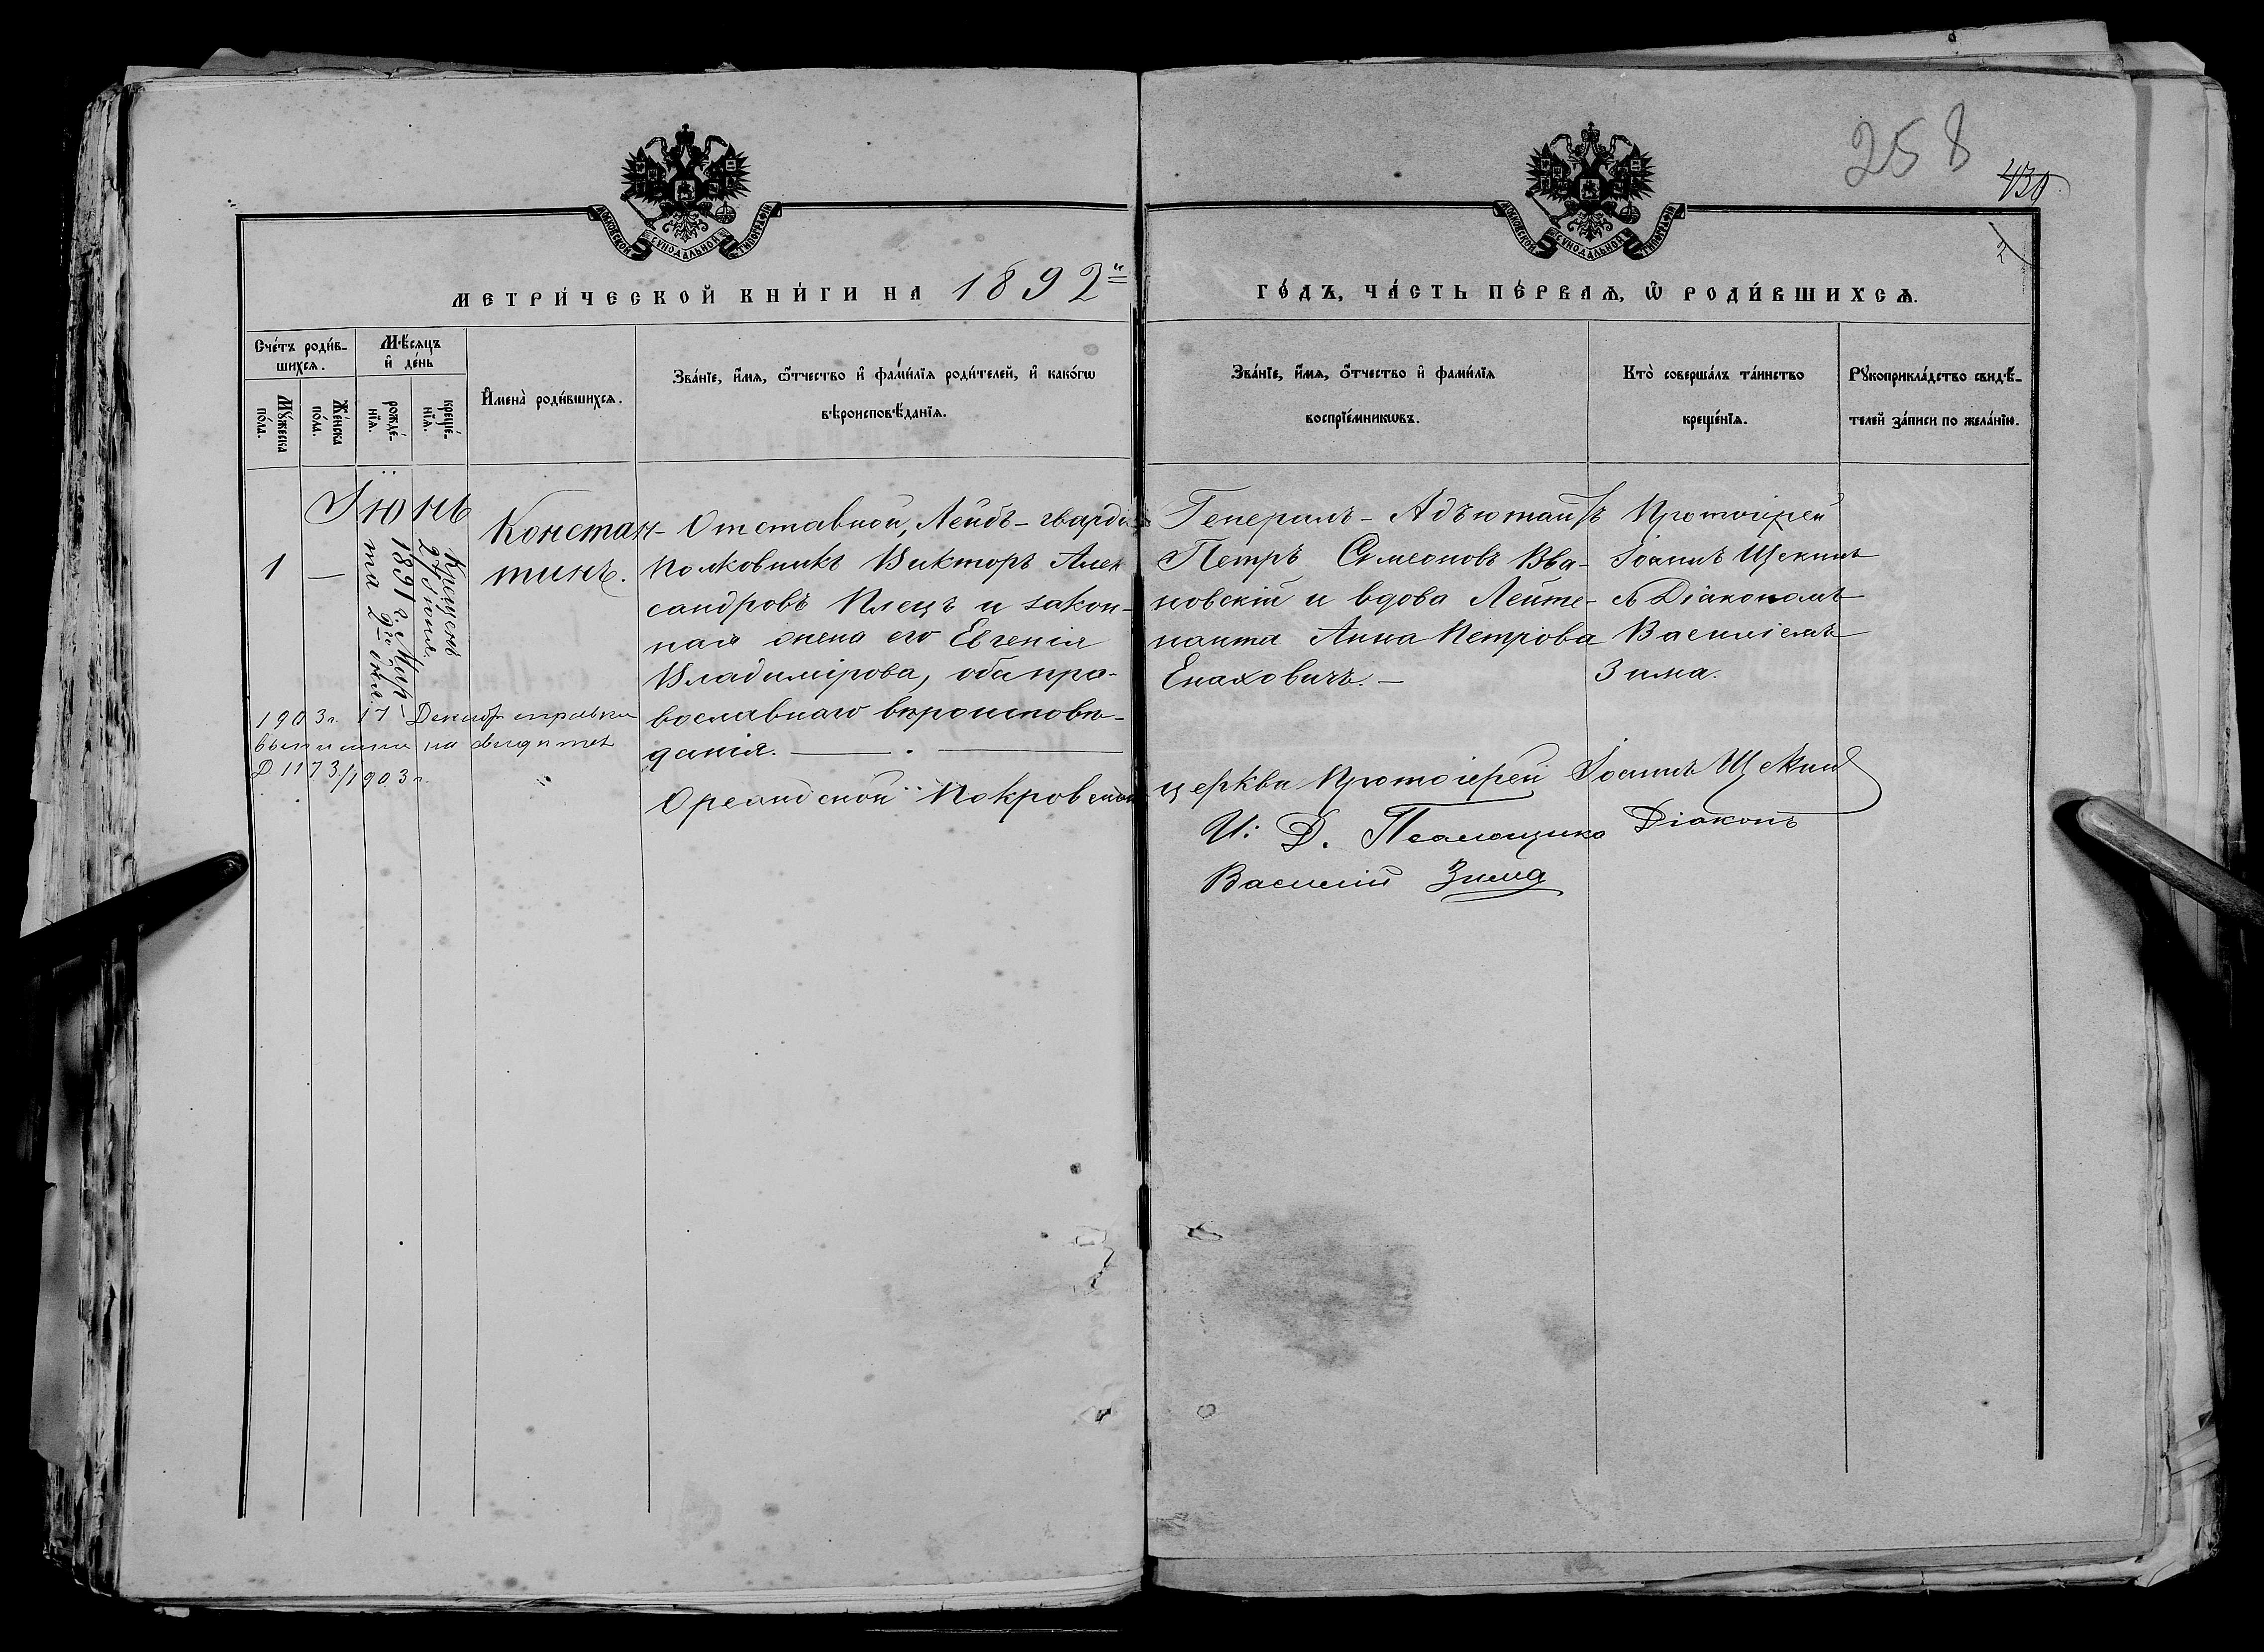 258
430
2
МОСКОВСКОЙ СѴНОДАЛЬНОЙ ТИПОГРАФІИ
МОСКОВСКОЙ СѴНОДАЛЬНОЙ ТИПОГРАФІИ
МЕТРИ́ЧЕСКОЙ КНИ́ГИ НА 1892й
ГО́ДЪ, ЧА́СТЬ ПЕ́РВАѦ, Ѡ҆ РОДИ́ВШИХСѦ.
Сче́тъ роди́в-
шихсѧ.
Мꙋ́жеска
по́ла.
Же́нска
по́ла.
Мѣ́сѧцъ
и҆ де́нь
рожде́-
нїѧ.
креще́-
нїѧ.
И҆мена̀ роди́вшихсѧ.
Зва́нїе, и҆́мѧ, ѻ҆́тчество и҆ фами́лїѧ роди́телей, и҆ како́гѡ
вѣроисповѣ́данїѧ.
Зва́нїе, и҆́мѧ, ѻ҆́тчество и҆ фами́лїѧ
воспрїе́мникѡвъ.
Кто̀ соверша́лъ та́инство
креще́нїѧ.
Рꙋкоприкла́дство свидѣ́-
телей за́писи по жела́нїю.
Іюнь
1
—
1891 г. Мар-
та 9го дня
Крещенъ
24 Іюня.
Констан-
тинъ.
Отставной, Лейбъ-гвардіи
Полковникъ Викторъ Алек
сандровъ Плецъ и закон-
ная жена его Евгенія
Владимірова, оба пра-
вославнаго вѣроисповѣ-
данія.
Генералъ-Адъютантъ
Петръ Симеоновъ Ва-
новскій и вдова Лейте-
нанта Анна Петрова
Енаховичъ.—
Протоіерей
Іоаннъ Щекинъ
съ Діакономъ
Василіемъ
Зима.
1903 г. 17 Декабр справка
на
Д 1173/1903 г.
Ореандской Покровской церкви Протоіерей Іоаннъ Щекинъ
И. Д. Псаломщика Діаконъ
Василій Зима